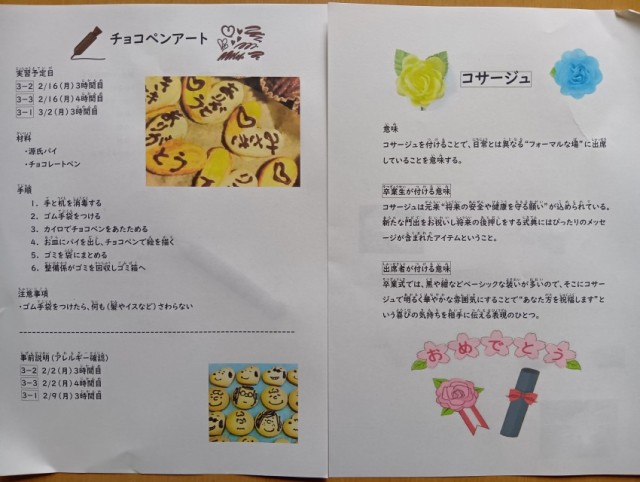 チョコペンアート
実習予定日
3-2 2/16(月)3時間目
3-3 2/16(月)4時間目
3-1 3/2(月)3時間目
材料
・源氏パイ
・チョコレートペン
手順
1. 手と机を消毒する
2. ゴム手袋をつける
3. カイロでチョコペンをあたためる
4. お皿にパイを出し、チョコペンで絵を描く
5. ゴミを袋にまとめる
6. 整備係がゴミを回収しゴミ箱へ
注意事項
・ゴム手袋をつけたら、何も(髪やイスなど)さわらない
事前説明(アレルギー確認)
3-2 2/2(月)3時間目
3-3 2/2(月)4時間目
3-1 2/9(月)3時間目
ありがとう
みさき
ありがとう
コサージュ
意味
コサージュを付けることで、日常とは異なる“フォーマルな場”に出席
していることを意味する。
卒業生が付ける意味
コサージュは元来“将来の安全や健康を守る願い”が込められている。
新たな門出をお祝いし将来の後押しをする式典にはぴったりのメッセ
ージが含まれたアイテムということ。
出席者が付ける意味
卒業式では、黒や紺などベーシックな装いが多いので、そこにコサー
ジュで明るく華やかな雰囲気にすることで“あなた方を祝福します”と
いう喜びの気持ちを相手に伝える表現のひとつ。
おめでとう